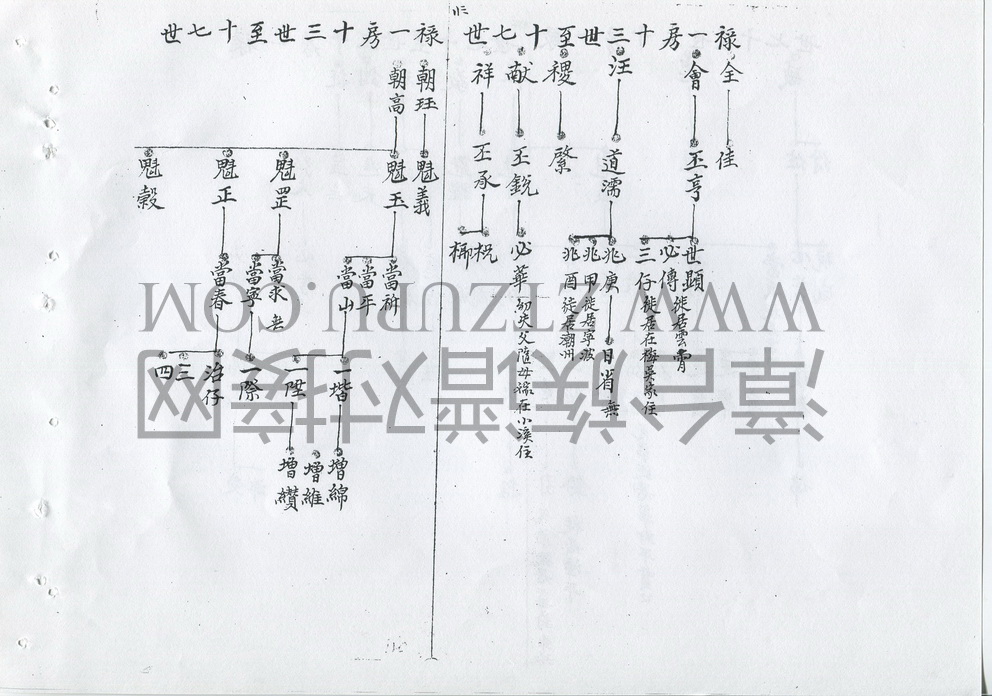 禄一房十三世至十七世
全
佳
會
丕亨
世顕徙居雲霄
必傳
三仔徙居在梅吳家住
汪
道濡
兆庚
日省無
兆甲徙居寧波
兆酉徙居潮州
稷
綮
献
丕銳
必華幼失父隨母嫁在小溪住
祥
丕承
柷
柳
禄一房十三世至十七世
朝珏
魁義
朝高
魁玉
當祈
當年
當山
一堦
增綿
增維
一陞
增纘
魁罡
當求
當寧
一際
魁正
當春
治仔
三
四
魁穀
WWW.ZTZUPU.COM
漳台族谱对接网